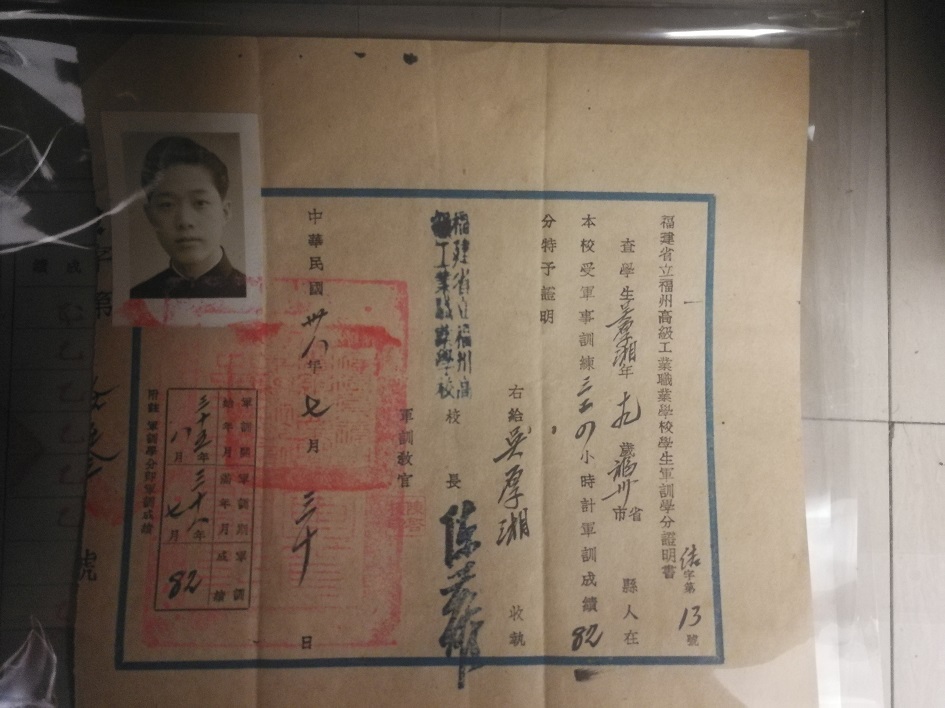 福建省立福州高級工業職業學校學生軍訓學分證明書
字第13號
查學生吳厚湘年 歲福州市省 縣人在
本校受軍事訓練三二〇小時計軍訓成績82
分特予證明
右給吳厚湘 收執
福建省立福州高
級工業職業學校
校長
軍訓教官
中華民國卅八年七月三十日
軍訓開始年月
軍訓期滿年月
軍訓成績
三十五年八月
三十八年七月
82
附註 軍訓學分即軍訓成績
字第
號
成績
乙
乙
乙
乙